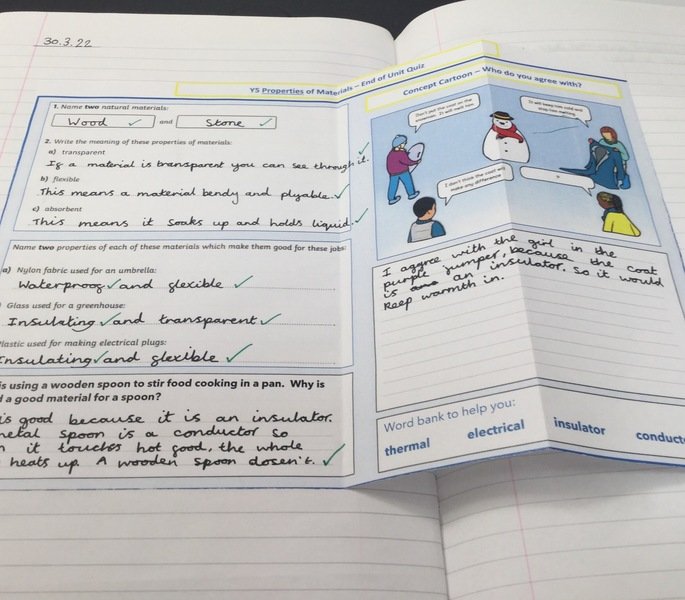 30.3.22
Y5 Properties of Materials – End of Unit Quiz
1. Name two natural materials:
Wood and Stone
2. Write the meaning of these properties of materials:
a) transparent
If a material is transparent you can see through it.
b) flexible
This means a material bendy and plyable.
c) absorbent
This means it soaks up and holds liquid.
Name two properties of each of these materials which make them good for these jobs:
a) Nylon fabric used for an umbrella:
Waterproof and flexible
Glass used for a greenhouse:
Insulating and transparent
Plastic used for making electrical plugs:
Insulating and flexible
is using a wooden spoon to stir food cooking in a pan. Why is
a good material for a spoon?
is good because it is an insulator.
metal spoon is a conductor so
it touches hot food, the whole
heats up. A wooden spoon dosen't.
Concept Cartoon – Who do you agree with?
Don't put the coat on the
snowman. It will melt him
It will keep him cold and
stop him melting
I don't think the coat will
make any difference
I aggree with the girl in the
purple jumper, because the coat
is an insulator. So it would
keep warmth in.
Word bank to help you:
thermal electrical insulator conduct